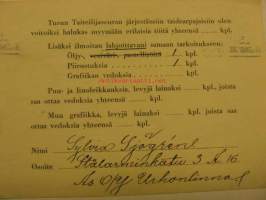 Turun Taiteilijaseuran järjestämiin taidearpajaisiin olen
voinulkei halukas myymään erilaisia töitä yhteensä ........ kpl.
Lisäksi ilmoitan lahjoittavani samaan tarkoitukseen:
Öljy-, vesiväri-, pastellitöitä 1 kpl.
Piirustuksia 1 kpl.
Grafiikan vedoksia ........ kpl.
Puu- ja linoleikkauksia, levyjä lainaksi ........ kpl, joista
saa ottaa vedoksia yhteensä ........ kpl.
Muu grafiikka, levyjä lainaksi ........ kpl, joista saa ottaa
vedoksia yhteensä ........ kpl.
Nimi Sylvia Sjögren
Osoite Stålarminkatu 3 A 16
As O/Y